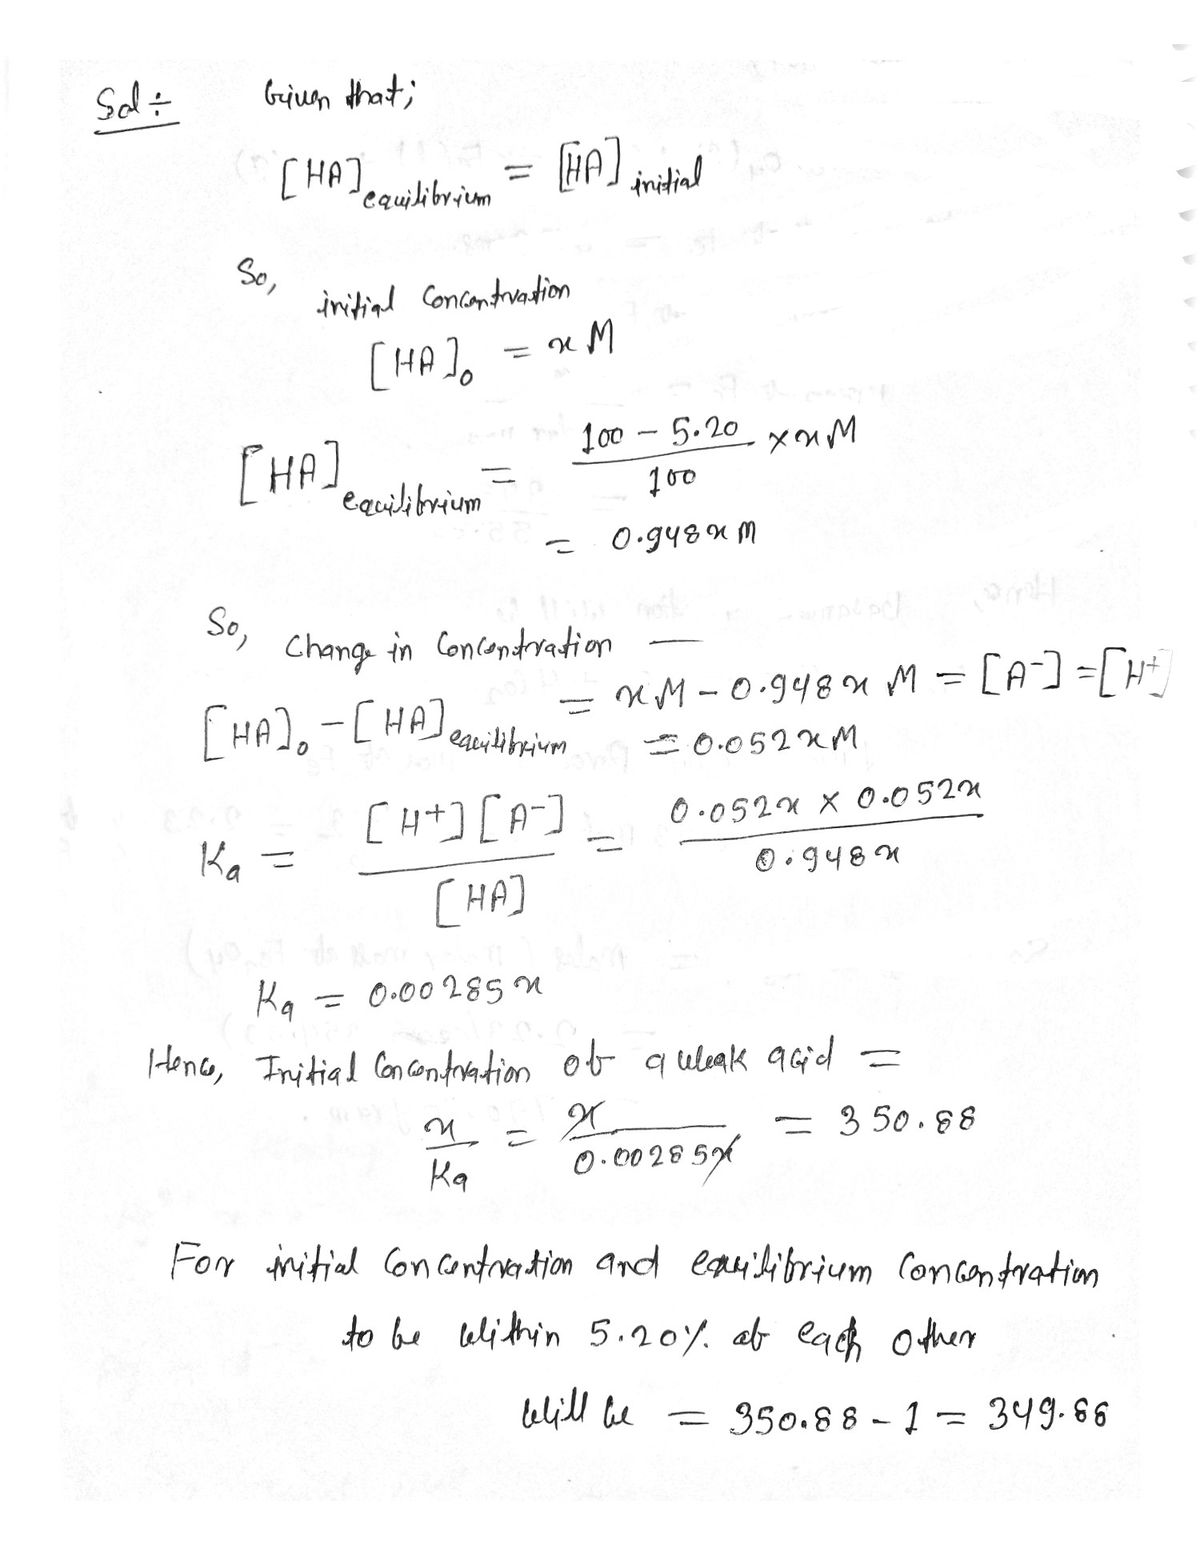 Sol ÷ Given that;
[HA]equilibrium = [HA] initial
So,
initial Concentration
[HA]₀ = x M
[HA]equilibrium = (100 - 5.20)/100 × x M
= 0.948 x M
So, Change in Concentration —
[HA]₀ - [HA]equilibrium = x M - 0.948 x M = [A⁻] = [H⁺]
= 0.052 x M
Ka = [H⁺][A⁻]/[HA] = 0.052x × 0.052x/0.948x
Ka = 0.00285 x
Hence, Initial Concentration of a weak acid =
x/Ka = x/0.00285x = 350.88
For initial Concentration and equilibrium Concentration
to be within 5.20% of each other
will be = 350.88 - 1 = 349.88